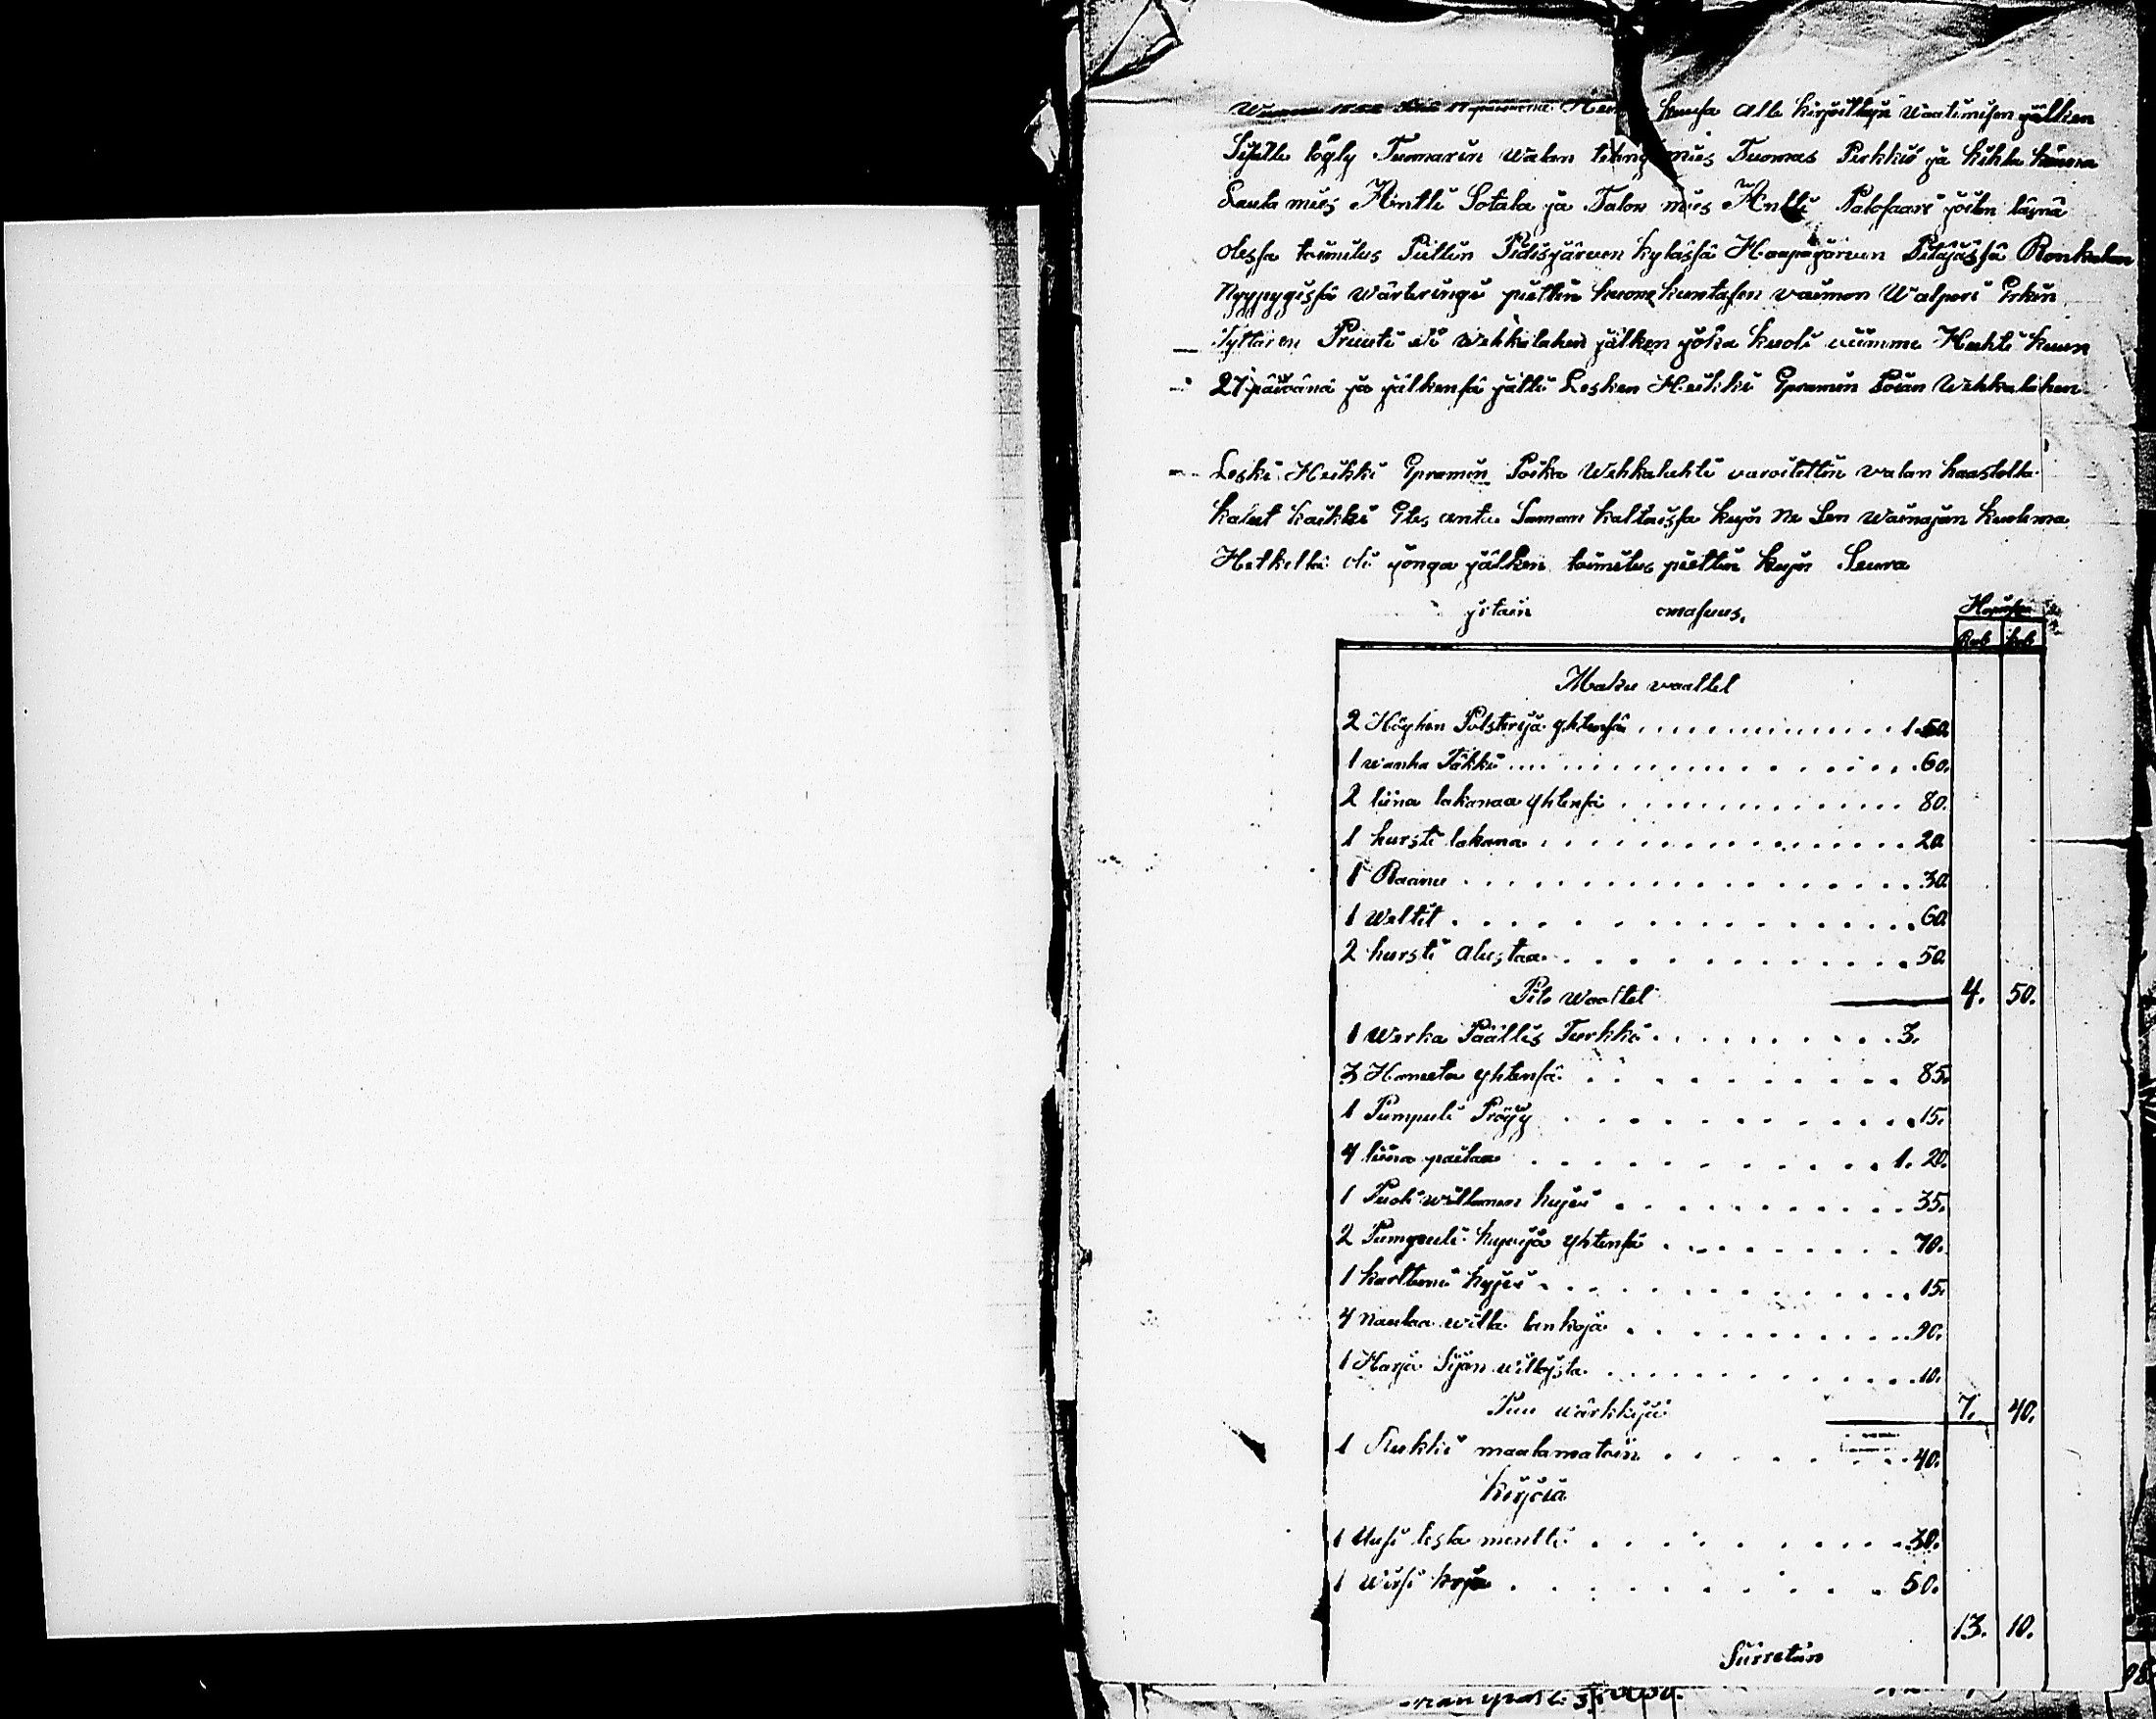 Wuonna 17 päivänä kuusa alle kirjoitetun Waatimisen jälken
Sisälle Tuomarin Walan tehny mies Tuomas Pirkkiö ja kihla kunna
Lauta mies Antti Sotala ja Talon mies Antti Palosaari joiten läsnä
olessa toimitus Pitettin Pidisjärwen kylässä Haapajärwen Pitäjässä Ronkalan
Nyypyyissä Wärteringi pitettin huone kuntasen vaimon Walpori Erkin
Tyttären Pruuti eli Wehkalahen jälken joka kuoli wiimme Huhti kuun
27 päiwänä ja jälkensä jätti Lesken Heikki Epramin Poian Wehkalahen
Leski Heikki Epramin Poika Wehkalahti varoitettin valan haastolla
kalut kaikki Eles antaa Saman kaltaissa kujn ne Sen Wainajan kuolema
Hetkellä oli jonga jälken toimitus pitettin kujn Seura
jitain omasuus,
Hopiassa
Rub kop
Maku vaattet
2 Höyhen Polsterija yhtensä 1.50.
1 wanha Täkki 60.
2 liina lakanaa yhtensä 80.
1 hursti lakana 20
1 Raanu 30.
1 Weltit 60
2 hursti alustaa 50
Pito Waattet 4. 50.
1 Werka Päällis Turkki 3.
3 Hameta yhtensä 85.
1 Pumpuli Pröjy 15.
4 liina paitaa 1. 20.
1 Puoli willanen hujvi 35.
2 Pumpuli hujvija yhtensä 70.
1 karttuni hujvi 15.
4 Naulaa willa lankoja 90.
1 Harja Sijan willojsta 10.
Puu wärkkijä 7. 40.
1 Rukki maalamatoin 40.
Kirjoia
1 Uusi testa mentti 30.
1 Wirsi kirja 50.
13. 10.
Siirretän